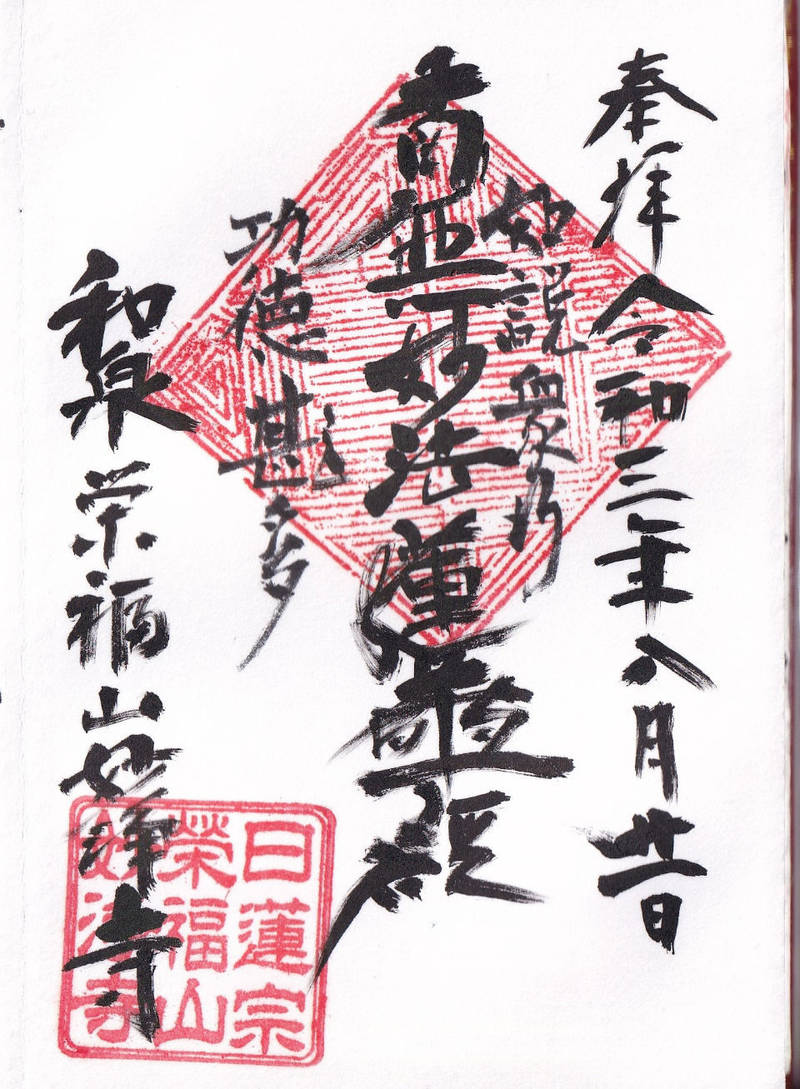 奉拝 令和三年八月廿一日
如説修行
南無妙法蓮華経
功徳甚多
和泉 栄福山 妙浄寺
日蓮宗
榮福山